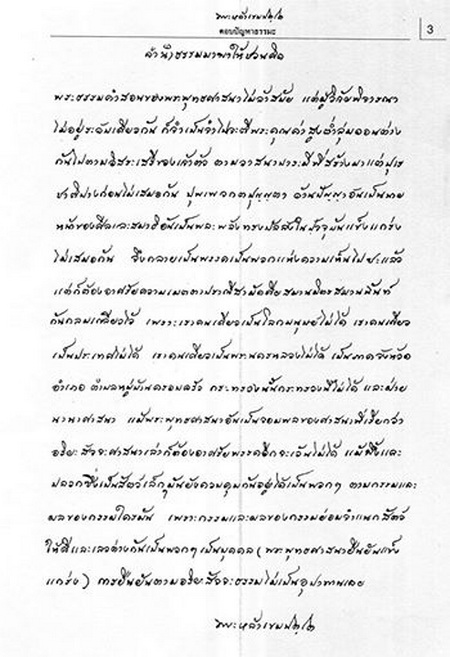 พระหล้าเขมปตฺโต
ตอบปัญหาธรรมะ
3
คำนำธรรมมาพาให้ชวนคิด
พระธรรมคำสอนของพระพุทธศาสนาไม่ล้าสมัย แต่ผู้วิจัยพิจารณา
ไม่อยู่ระดับเดียวกัน ก็จำเป็นจำไปจะตีพระคุณค่าสูงต่ำลุ่มดอนต่าง
กันไปตามอิสระเสรีของเจ้าตัว ตามวาสนาบารมีที่สร้างมาแต่ปุเร
ชาติปางก่อนไม่เสมอกัน ปุพเพกตปุญฺญตา ด้านปัญญาอันเป็นนาย
หน้าของศีลและสมาธิอันเป็นพละพลังทรงปัสสัทในปัจจุบันแข็งแกร่ง
ไม่เสมอกัน จึงกลายเป็นพรรคเป็นพวกแห่งความเห็นไปซะแล้ว
แต่ก็ต้องอาศัยความเมตตาปรานีสามัคคีสมานมิตรสมานฉันท์
กันกลมเกลียวไว้ เพราะเราคนเดียวเป็นโลกมนุษย์ไม่ได้ เราคนเดียว
เป็นประเทศไม่ได้ เราคนเดียวเป็นพระนครหลวงไม่ได้ เป็นภาคจังหวัด
อำเภอ ตำบลหมู่บ้านครอบครัว กระทรวงนั้นกระทรวงนี้ไม่ได้ และฝ่าย
นานาศาสนา แม้พระพุทธศาสนาอันเป็นจอมพลของศาสนาที่เรียกว่า
อริยะสัจจะศาสนาเล่าก็ต้องอาศัยพรรคอีกจะเว้นไม่ได้ แม้ผึ้งและ
ปลวกซึ่งเป็นสัตว์เล็กๆมันยังควบคุมกันอยู่ได้เป็นพวกๆ ตามกรรมและ
ผลของกรรมใครมัน เพราะกรรมและผลของกรรมย่อมจำแนกสัตว์
ให้ดีและเลวต่างกันเป็นพวกๆเป็นบุคคล (พระพุทธศาสนายืนยันแข็ง
แกร่ง) การยืนยันตามอริยะสัจจะธรรมไม่เป็นอุปาทานเลย
พระหล้าเขมปตฺโต